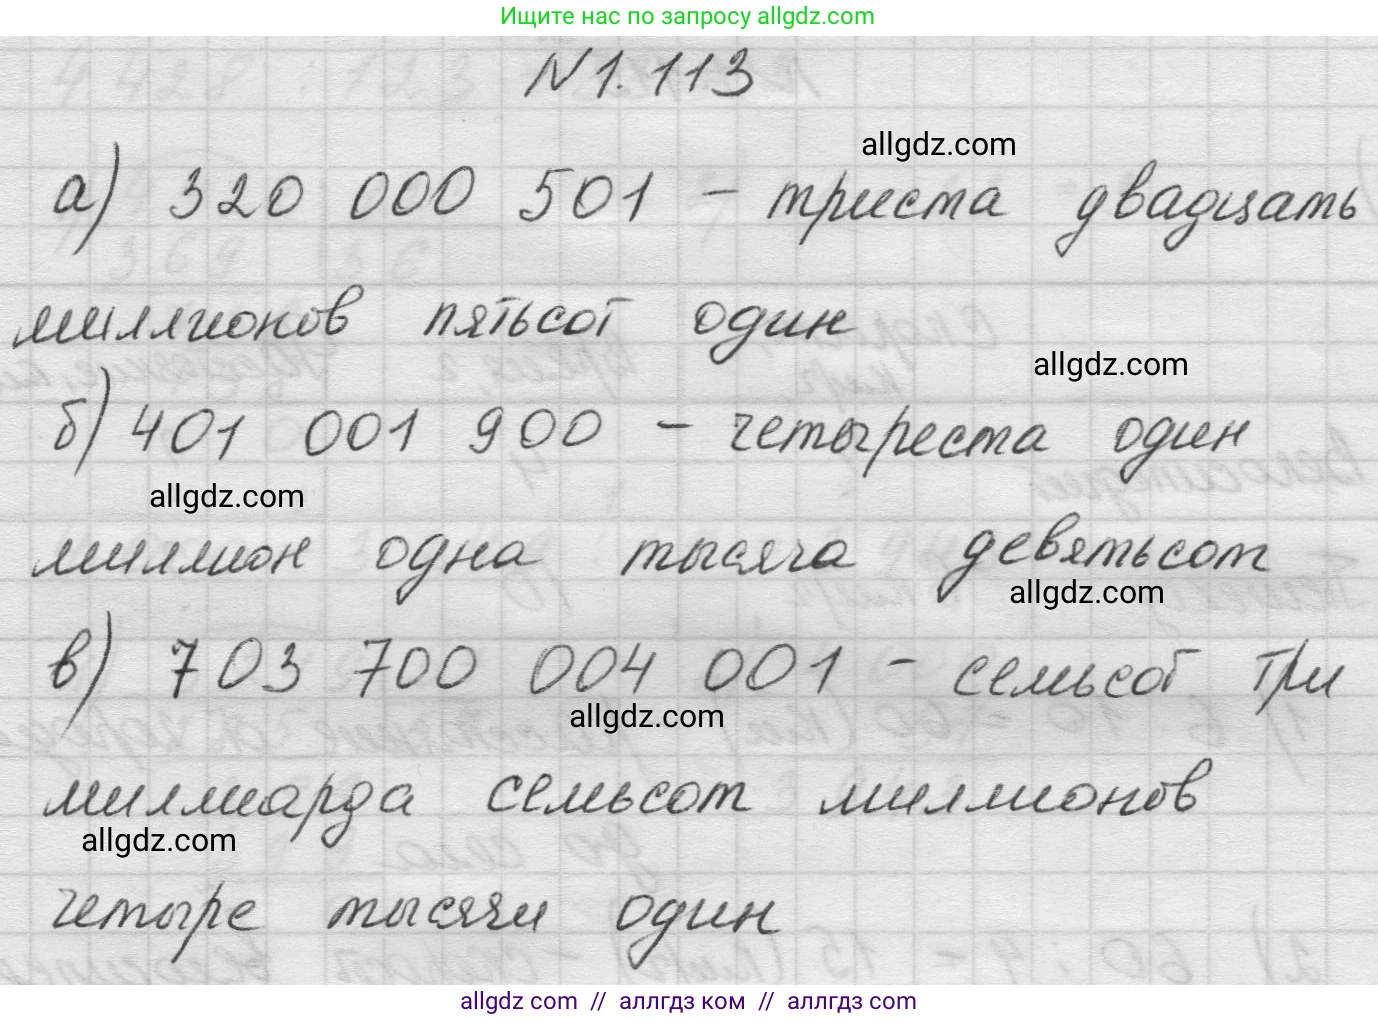 Ищите нас по запросу allgdz.com
N 1.113
allgdz.com
а) 320 000 501 – триста двадцать
миллионов пятьсот один
allgdz.com
б) 401 001 900 – четыреста один
allgdz.com
миллион одна тысяча девятьсот
allgdz.com
в) 703 700 004 001 – семьсот три
allgdz.com
миллиарда семьсот миллионов
allgdz.com
четыре тысячи один
allgdz com // аллгдз ком // аллгдз com